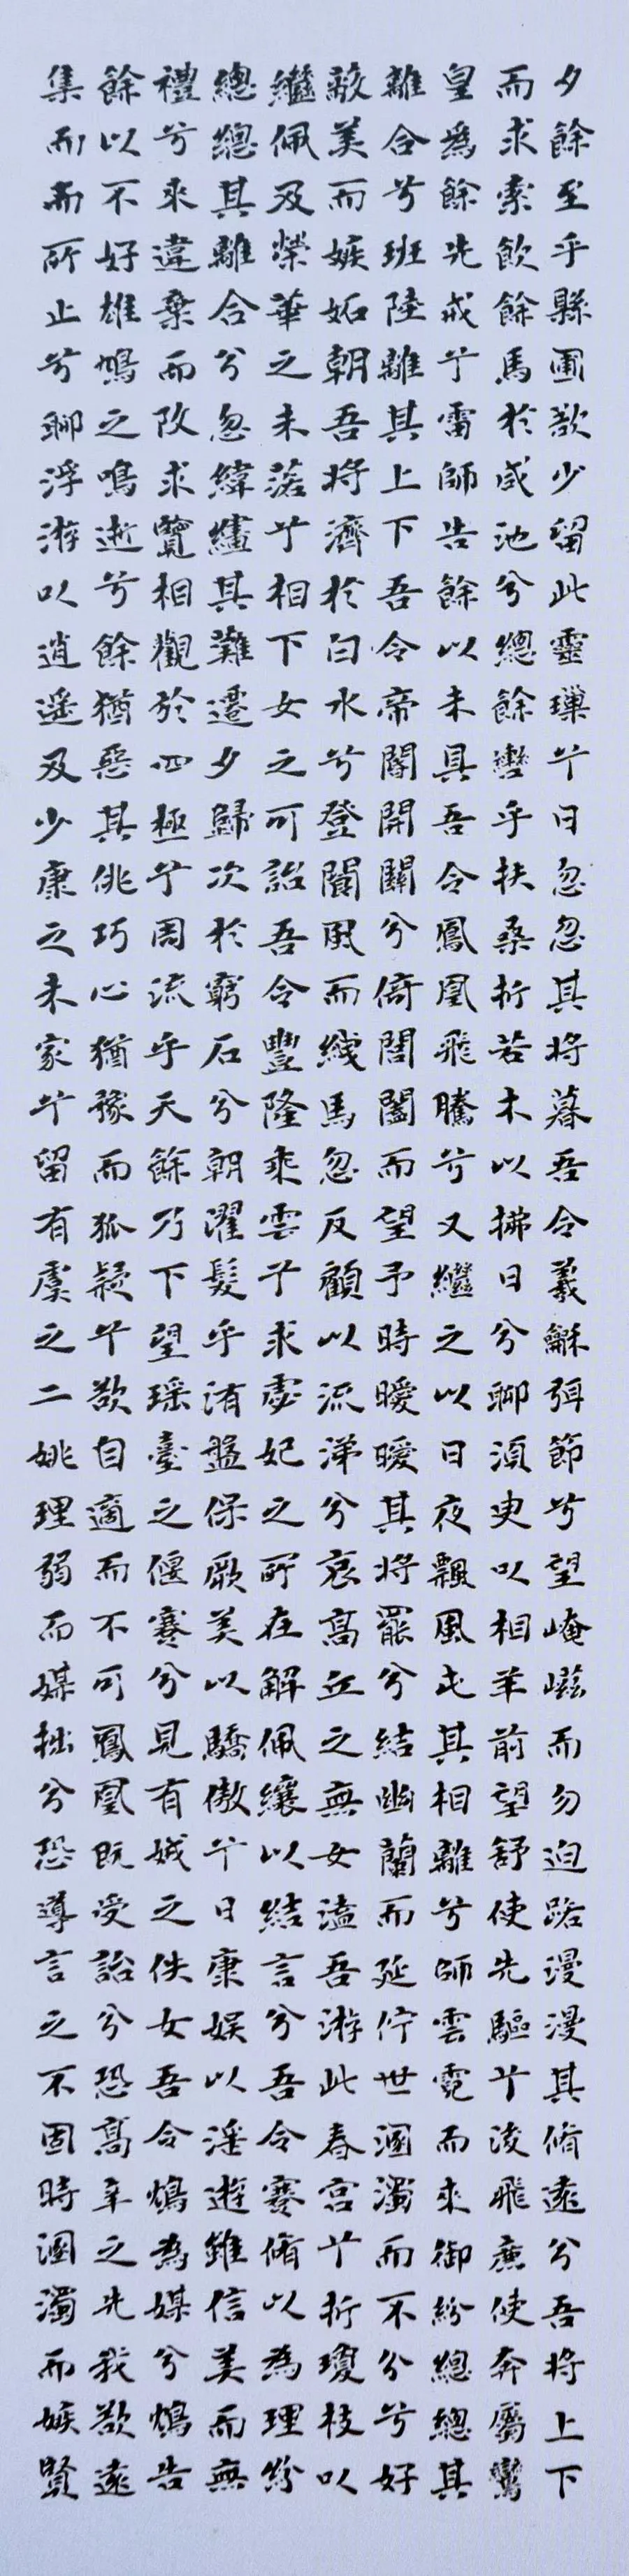 夕餘至乎縣圃欲少留此靈璅兮日忽忽其將暮吾令羲龢弭節兮望崦嵫而勿迫路漫漫其脩遠兮吾將上下
而求索飲餘馬於咸池兮總餘轡乎扶桑折若木以拂日兮聊須臾以相羊前望舒使先驅兮後飛廉使奔屬鸞
皇爲餘先戒兮雷師告餘以未具吾令鳳凰飛騰兮又繼之以日夜飄風屯其相離兮師雲霓而來御紛總總其
離合兮班陸離其上下吾令帝閽開關兮倚閶闔而望予時曖曖其將罷兮結幽蘭而延佇世溷濁而不分兮好
蔽美而嫉妬朝吾將濟於白水兮登閬風而緤馬忽反顧以流涕兮哀高丘之無女溘吾游此春宮兮折瓊枝以
繼佩及榮華之未落兮相下女之可詒吾令豐隆乘雲兮求宓妃之所在解佩纕以結言兮吾令蹇脩以為理紛
總總其離合兮忽緯繣其難遷夕歸次於窮石兮朝濯髮乎洧盤保厥美以驕傲兮日康娛以淫遊雖信美而無
禮兮來違棄而改求覽相觀於四極兮周流乎天餘乃下望瑤臺之偃蹇兮見有娀之佚女吾令鴆為媒兮鴆告
餘以不好雄鳩之鳴逝兮餘猶惡其佻巧心猶豫而狐疑兮欲自適而不可鳳凰既受詒兮恐高辛之先我欲遠
集而而所止兮聊浮游以逍遙及少康之未家兮留有虞之二姚理弱而媒拙兮恐導言之不固時溷濁而嫉賢